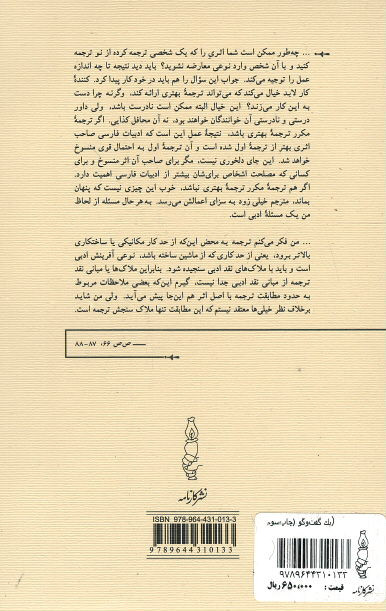 ... چه‌طور ممکن است شما اثری را که یک شخصی ترجمه کرده از نو ترجمه
کنید و با آن شخص وارد نوعی معارضه نشوید؟ باید دید نتیجه تا چه اندازه
عمل را توجیه می‌کند. جواب این سؤال را هم باید در خود کار پیدا کرد. کنندهٔ
کار لابد خیال می‌کند که می‌تواند ترجمهٔ بهتری ارائه کند، وگرنه چرا دست
به این کار می‌زند؟ این خیال البته ممکن است نادرست باشد، ولی داور
درستی و نادرستی آن خوانندگان خواهند بود، نه آن محافل کذایی. اگر ترجمهٔ
مکرر ترجمهٔ بهتری باشد، نتیجهٔ عمل این است که ادبیات فارسی صاحب
اثری بهتر از ترجمهٔ اول شده است و آن ترجمهٔ اول به احتمال قوی منسوخ
خواهد شد. این جای دلخوری نیست، مگر برای صاحب آن اثر منسوخ و برای
کسانی که مصلحت اشخاص برای‌شان بیشتر از ادبیات فارسی اهمیت دارد.
اگر هم ترجمهٔ مکرر ترجمهٔ بهتری نباشد، خوب این چیزی نیست که پنهان
بماند، مترجم خیلی زود به سزای اعمالش می‌رسد. به هر حال مسئله از لحاظ
من یک مسئلهٔ ادبی است.
... من فکر می‌کنم ترجمه به محض این‌که از حد کار مکانیکی یا ساختکاری
بالاتر برود، یعنی از حد کاری که از ماشین ساخته باشد، نوعی آفرینش ادبی
است و باید با ملاک‌های نقد ادبی سنجیده شود. بنابراین ملاک‌ها یا مبانی نقد
ترجمه از مبانی نقد ادبی جدا نیست، گیرم این‌که بعضی ملاحظات مربوط
به حدود مطابقت ترجمه با اصل اثر هم این‌جا پیش می‌آید. ولی من شاید
برخلاف نظر خیلی‌ها معتقد نیستم که این مطابقت تنها ملاک سنجش ترجمه است.
صص ۶۶، ۸۷-۸۸
نشر کارنامه
ISBN 978-964-431-013-3
9789644310133
(یک گفت‌وگو (چاپ سوم
۹۷۸۹۶۴۴۳۱۰۱۳۳
قیمت : ۶۵۰,۰۰۰ ریال
نشر کارنامه